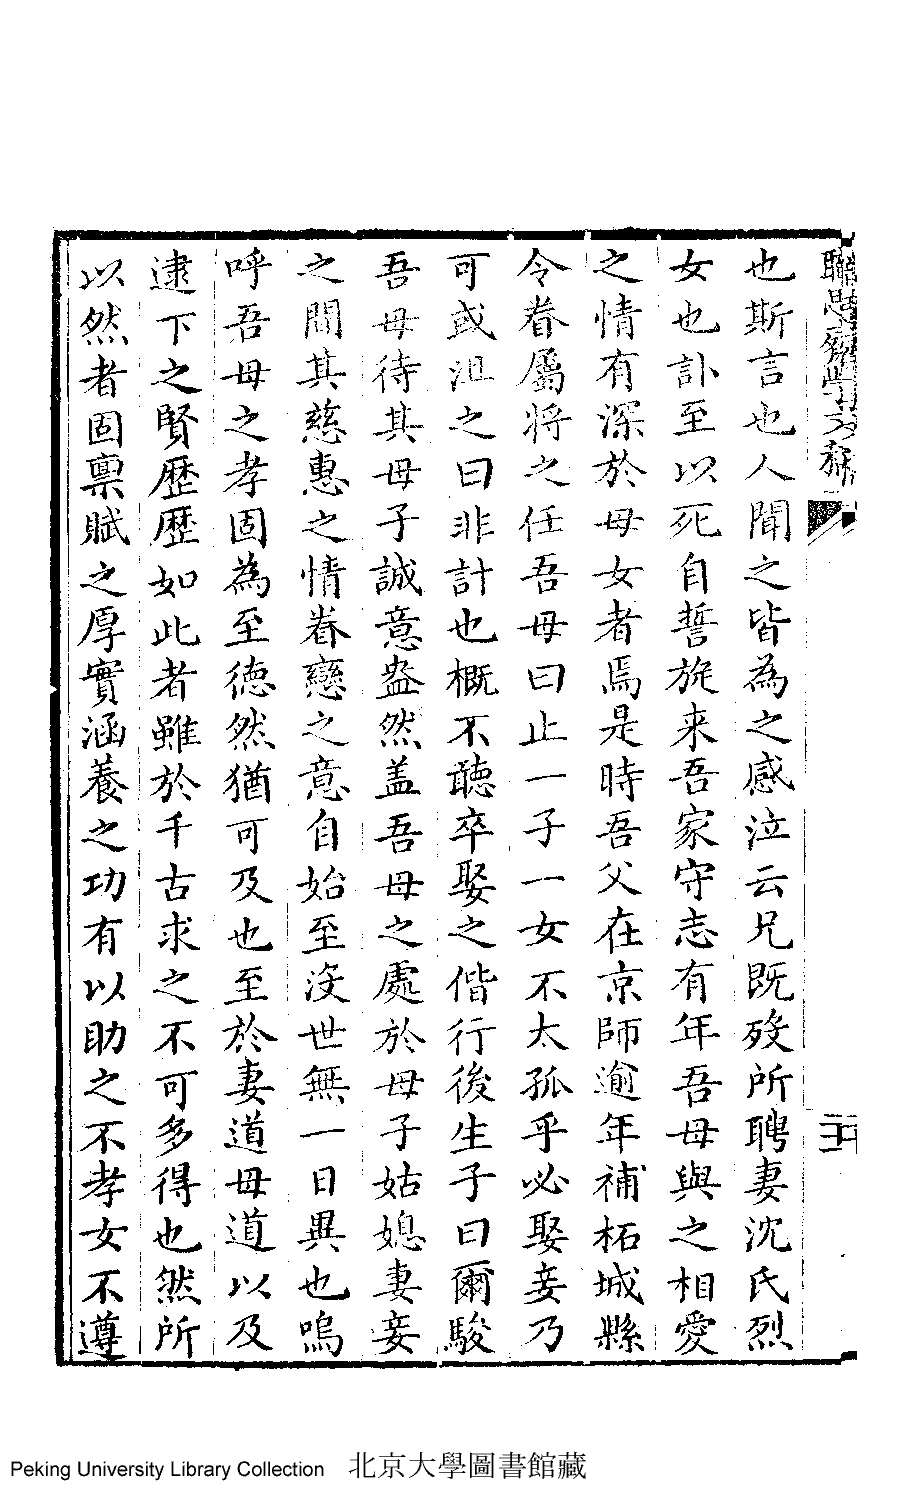 也斯言也人聞之皆為之感泣云兄既歿所聘妻沈氏烈
女也訃至以死自誓旋来吾家守志有年吾母與之相愛
之情有深於母女者焉是時吾父在京師逾年補柘城縣
令眷屬將之任吾母曰止一子一女不太孤乎必娶妾乃
可或沮之曰非計也概不聽卒娶之偕行後生子曰爾駿
吾母待其母子誠意盎然盖吾母之處於母子姑媳妻妾
之間其慈惠之情眷戀之意自始至沒世無一日異也嗚
呼吾母之孝固為至德然猶可及也至於妻道母道以及
逮下之賢歷歷如此者雖於千古求之不可多得也然所
以然者固禀賦之厚實涵養之功有以助之不孝女不遵
Peking University Library Collection 北京大學圖書館藏